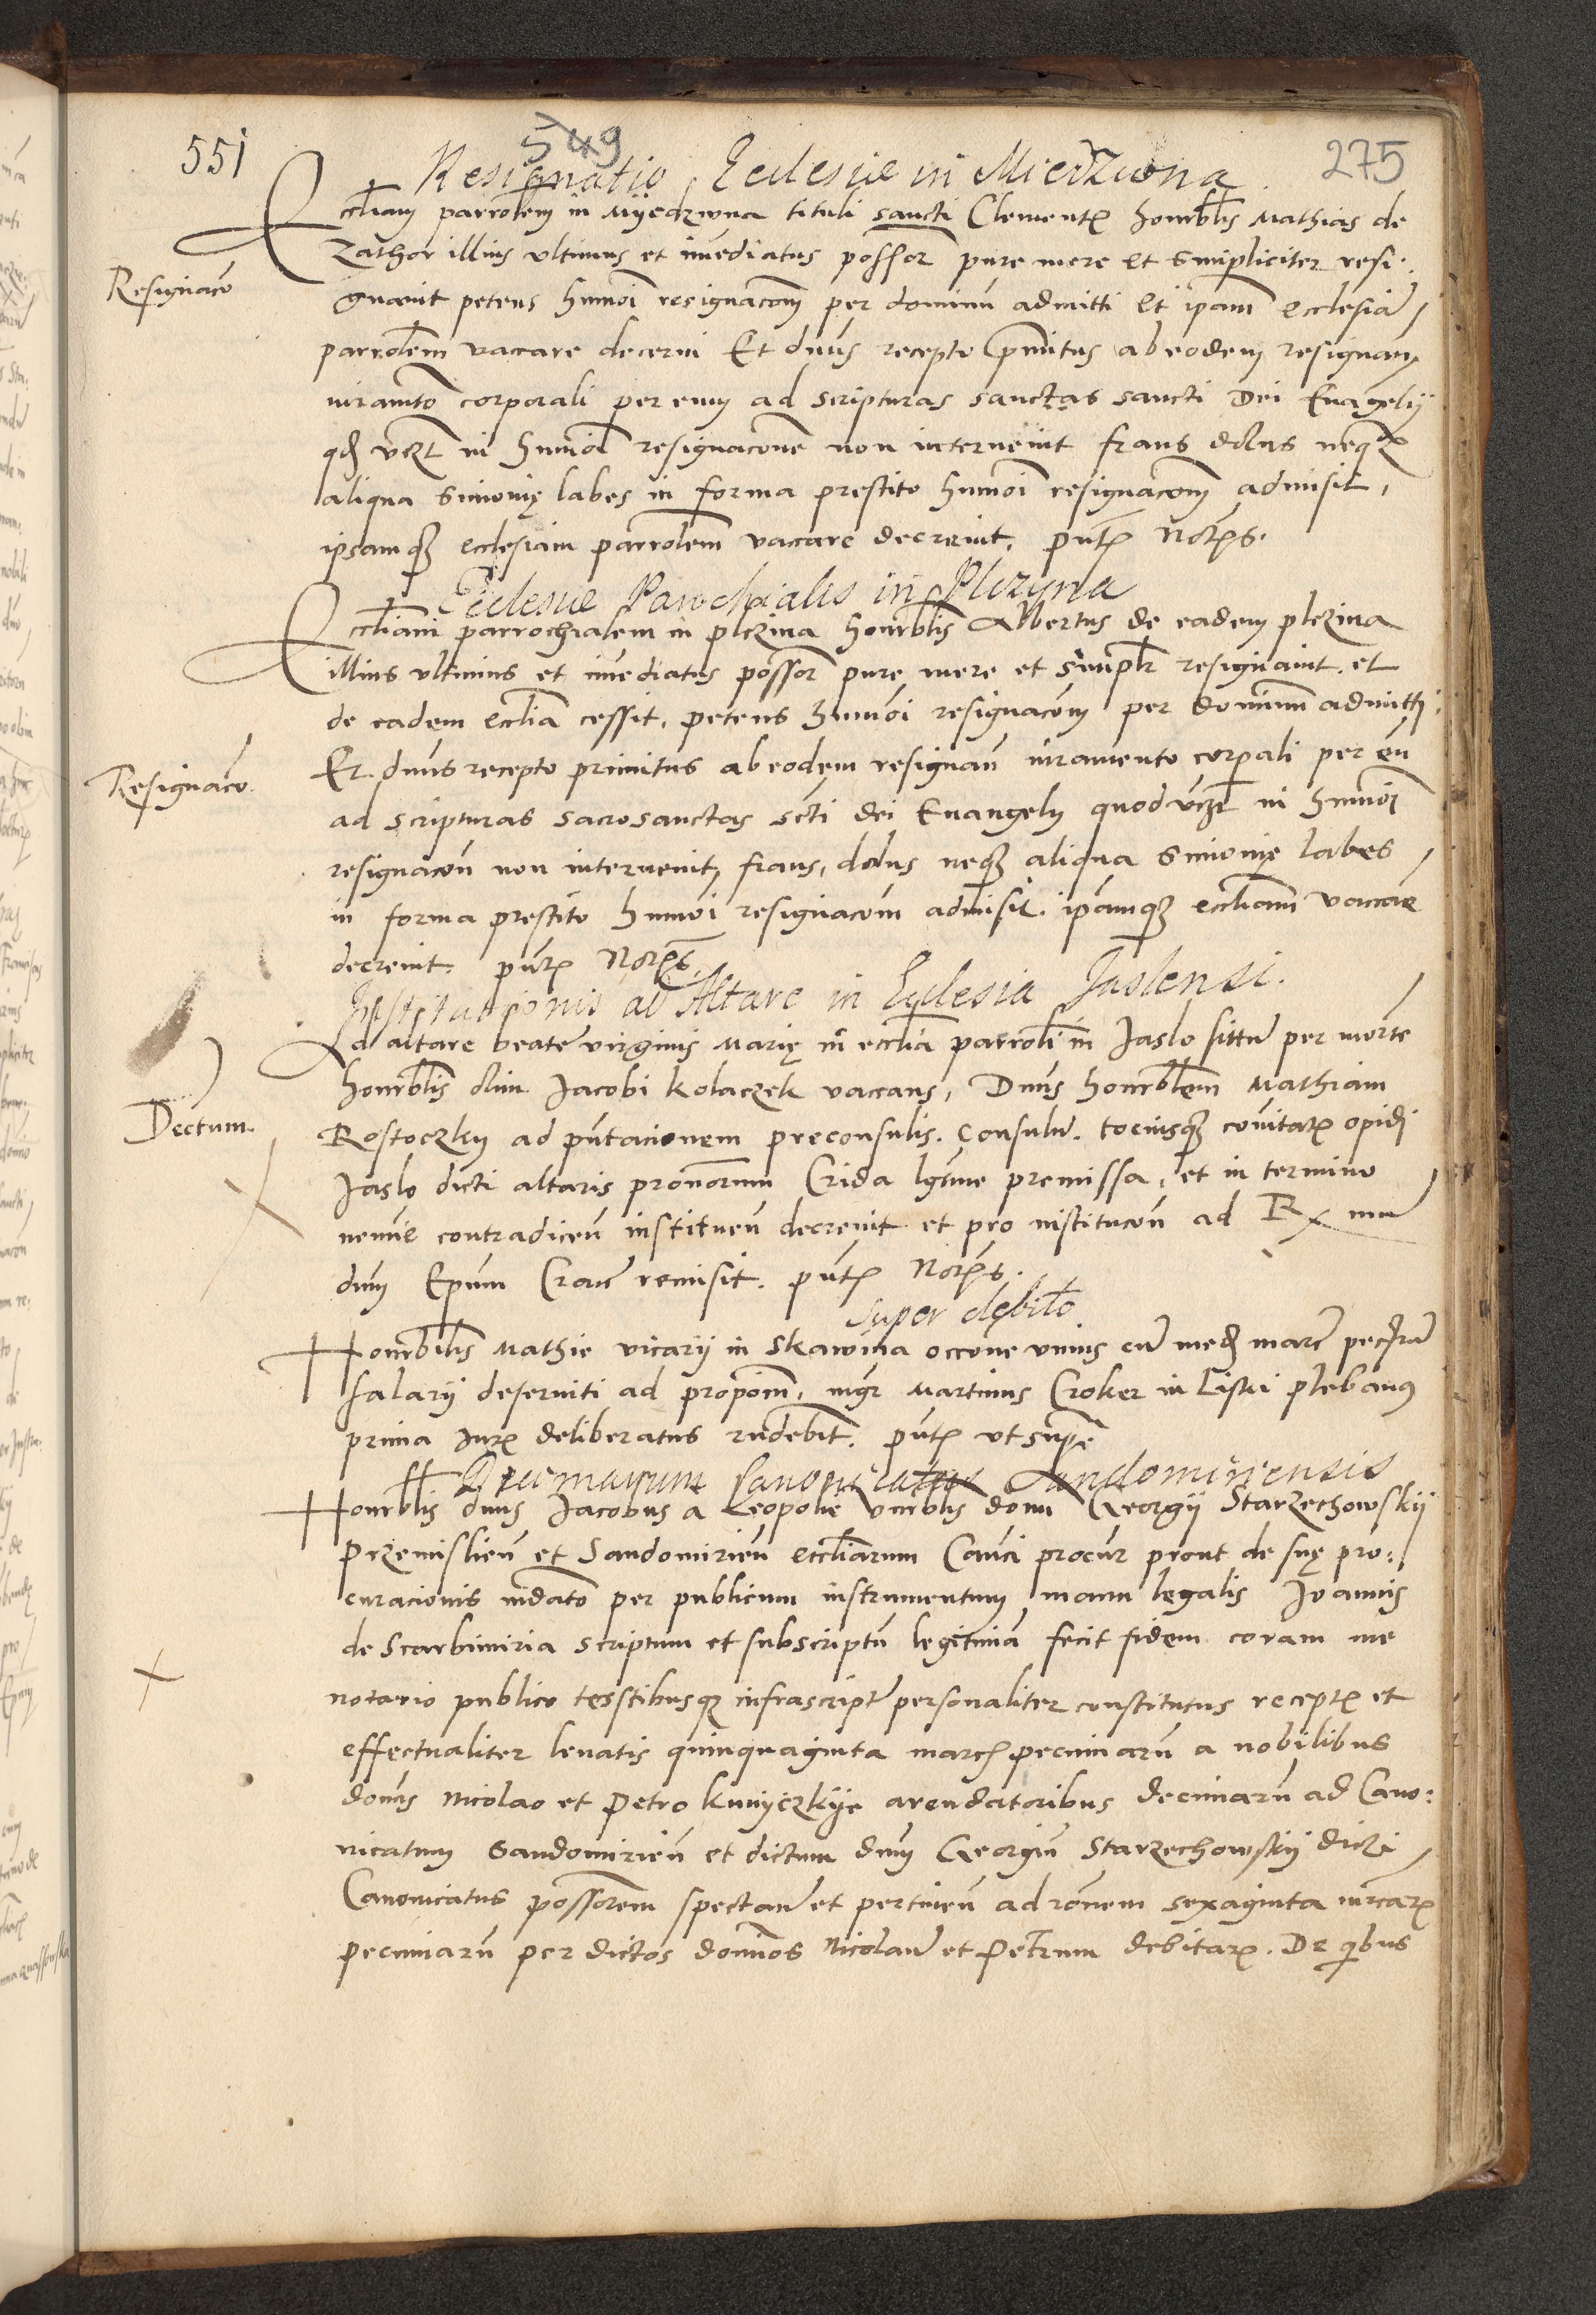 551
549
275
Resignatio Ecclesiae in Miedzwna
Eccliam parrolem in Myedzwna tituli sancti Clementis honrblis Mathias de
Zathor illius vltimus et immediatus possor pure mere et simpliciter resi-
Resignaco
gnauit petens hmoi resignacom per dominu admitti Et ipam ecclesia
parrolem vaccare decerni Et dnus recepto primitus ab eodem resignan
iuramto corporali per eum ad scripturas sanctas sancti Dei Euangelij
qd vczt in hmoi resignacone non interuenit fraus dolus neqz
aliqua simonię labes in forma prestito hmoi resignacom admisit,
ipsamqz ecclesiam parrolem vaccare decreuit. pntz Notzs.
Ecclesiae Parochialis in Plczyna
Eccliam parrochialem in plczina honrblis Albertus de eadem plczina
illius vltimus et immediatus possor pure mere et simplr resignauit. et
de eadem ecclia cessit, petens hmoi resignacom per dominum admitti.
Resignaco.
Et dnus recepto primitus ab eodem resignan iuramento corporali per eu
ad scripturas sacrosanctas scti dei Euangelij quod vczt in hmoi
resignacon non interuenit fraus, dolus neqz aliqua simonię labes
in forma prestito hmoi resignacom admisit. ipamqz eccliam vaccare
decreuit. pntz Notzs
Institutionis ad Altare in Ecclesia Jaslensi.
Ad altare beate virginis Marię in ecclia parroli in Jaslo situ per morte
honrblis olim Jacobi Kolaczek vaccans, Dnus honrblem Mathiam
Dectum.
Rostoczky ad pntacionem preconsulis. Consulu. tociusqz comitatz opidi
Jaslo dicti altaris pronorum Crida lgtime premissa, et in termino
nemine contradicen instituen decreuit et pro institucon ad R mu
dnm Epum Crac remisit. pntz Notzs.
super debito
Honrbilis Mathie vicarij in Skawina occone vnius cu med marc pecuniar
salarij deseruiti ad propom, mgr Martinus Croker in Liski plebanus
prima Jurz deliberatus rndebit. pntz vt supra
Decimarum Canonicatus Sandomiriensis
Honrblis dnus Jacobus a Leopoli vnrblis domi Georgij Starzechowskij
Przemislien et Sandomirien eccliarum Canci procur prout de suę pro-
curacionis mdato per publicum instrumentum manu legalis Joannis
de Scarbimiria scriptum et subscriptu legitima fecit fidem coram me
notario publico testibusqz infrascript personaliter constitutus receptz et
effectualiter leuatis quinquaginta march pecuniaru a nobilibus
domis Nicolao et Petro Kunyczkye arendatoribus decimaru ad Cano-
nicatum Sandomirien et dictum dnm Georgiu Starzechowskij dicti
Canonicatus possorem spectan et pertinen ad ronem sexaginta mrcarz
pecuniaru per dictos domos Nicolau et Petrum debitarz. De qibus